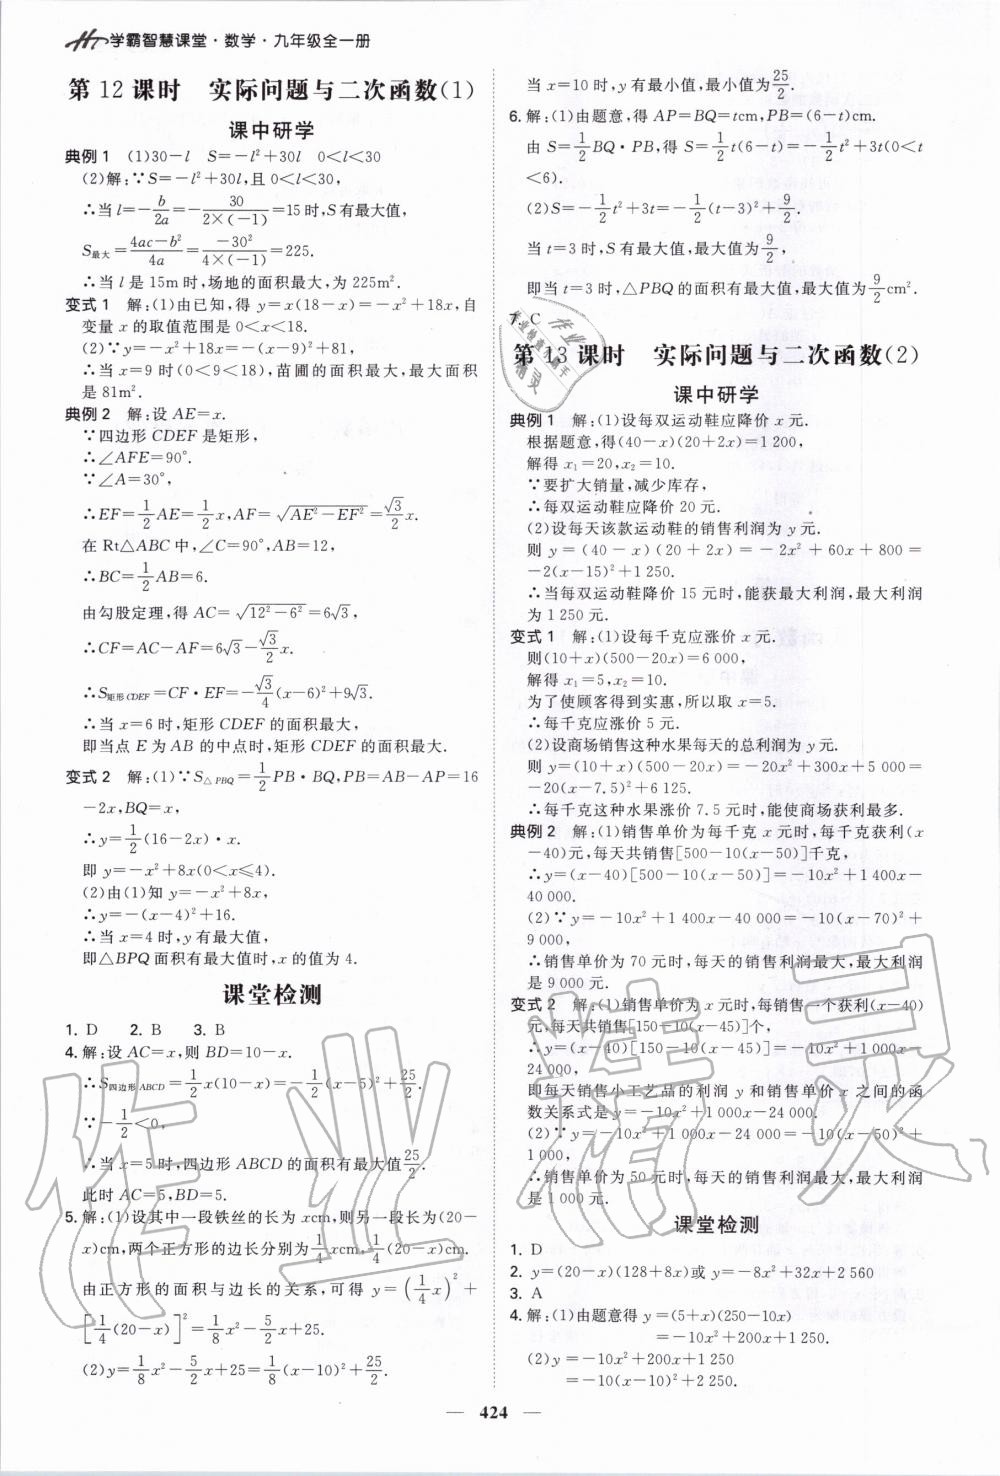 学霸智慧课堂·数学·九年级全一册
第12课时　实际问题与二次函数(1)
课中研学
典例1　(1)30－l　S=－l²+30l　0<l<30
(2)解:∵S=－l²+30l,且0<l<30,
∴当l=－b/2a=－30/(2×(－1))=15时,S有最大值,
S最大=(4ac－b²)/4a=(－30²)/(4×(－1))=225.
∴当l是15m时,场地的面积最大,为225m².
变式1　解:(1)由已知,得y=x(18－x)=－x²+18x,自
变量x的取值范围是0<x<18.
(2)∵y=－x²+18x=－(x－9)²+81,
∴当x=9时(0<9<18),苗圃的面积最大,最大面积
是81m².
典例2　解:设AE=x.
∵四边形CDEF是矩形,
∴∠AFE=90°.
∵∠A=30°,
∴EF=1/2AE=1/2x,AF=√(AE²－EF²)=√3/2x.
在Rt△ABC中,∠C=90°,AB=12,
∴BC=1/2AB=6.
由勾股定理,得AC=√(12²－6²)=6√3,
∴CF=AC－AF=6√3－√3/2x.
∴S矩形CDEF=CF·EF=－√3/4(x－6)²+9√3.
∴当x=6时,矩形CDEF的面积最大,
即当点E为AB的中点时,矩形CDEF的面积最大.
变式2　解:(1)∵S△PBQ=1/2PB·BQ,PB=AB－AP=16
－2x,BQ=x,
∴y=1/2(16－2x)·x.
即y=－x²+8x(0<x≤4).
(2)由(1)知y=－x²+8x,
∴y=－(x－4)²+16.
∴当x=4时,y有最大值,
即△BPQ面积有最大值时,x的值为4.
课堂检测
1. D　2. B　3. B
4. 解:设AC=x,则BD=10－x.
∴S四边形ABCD=1/2x(10－x)=－1/2(x－5)²+25/2.
∵－1/2<0,
∴当x=5时,四边形ABCD的面积有最大值25/2.
此时AC=5,BD=5.
5. 解:(1)设其中一段铁丝的长为xcm,则另一段长为(20－
x)cm,两个正方形的边长分别为1/4xcm,1/4(20－x)cm.
由正方形的面积与边长的关系,可得y=(1/4x)²+
[1/4(20－x)]²=1/8x²－5/2x+25.
(2)y=1/8x²－5/2x+25=1/8(x－10)²+25/2
当x=10时,y有最小值,最小值为25/2.
6. 解:(1)由题意,得AP=BQ=tcm,PB=(6－t)cm.
由S=1/2BQ·PB,得S=1/2t(6－t)=－1/2t²+3t(0<t
<6).
(2)S=－1/2t²+3t=－1/2(t－3)²+9/2.
当t=3时,S有最大值,最大值为9/2,
即当t=3时,△PBQ的面积有最大值,最大值为9/2cm².
7. C
第13课时　实际问题与二次函数(2)
课中研学
典例1　解:(1)设每双运动鞋应降价x元.
根据题意,得(40－x)(20+2x)=1 200,
解得x₁=20,x₂=10.
∵要扩大销量,减少库存,
∴每双运动鞋应降价20元.
(2)设每天该款运动鞋的销售利润为y元.
则y=(40－x)(20+2x)=－2x²+60x+800=
－2(x－15)²+1 250.
∴当每双运动鞋降价15元时,能获最大利润,最大利润
为1 250元.
变式1　解:(1)设每千克应涨价x元.
则(10+x)(500－20x)=6 000,
解得x₁=5,x₂=10.
为了使顾客得到实惠,所以取x=5.
∴每千克应涨价5元.
(2)设商场销售这种水果每天的总利润为y元.
则y=(10+x)(500－20x)=－20x²+300x+5 000=
－20(x－7.5)²+6 125.
∴每千克这种水果涨价7.5元时,能使商场获利最多.
典例2　解:(1)销售单价为每千克x元时,每千克获利(x
－40)元,每天共销售[500－10(x－50)]千克,
∴y=(x－40)[500－10(x－50)]=－10x²+1 400x－
40 000.
(2)∵y=－10x²+1 400x－40 000=－10(x－70)²+
9 000,
∴销售单价为70元时,每天的销售利润最大,最大利润
是9 000元.
变式2　解:(1)销售单价为x元时,每销售一个获利(x－40)
元,每天共销售[150－10(x－45)]个,
∴y=(x－40)[150－10(x－45)]=－10x²+1 000x－
24 000,
即每天销售小工艺品的利润y和销售单价x之间的函
数关系式是y=－10x²+1 000x－24 000.
(2)∵y=－10x²+1 000x－24 000=－10(x－50)²+
1 000,
∴销售单价为50元时,每天的销售利润最大,最大利润
是1 000元.
课堂检测
1. D
2. y=(20－x)(128+8x)或y=－8x²+32x+2 560
3. A
4. 解:(1)由题意得y=(5+x)(250－10x)
=－10x²+200x+1 250.
(2)y=－10x²+200x+1 250
=－10(x－10)²+2 250.
— 424 —
作业精灵